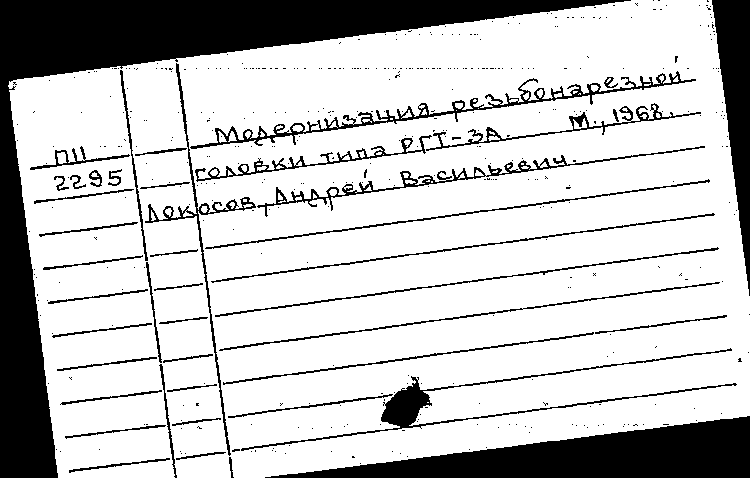 Модернизация резьбонарезной
П11 головки типа РГТ-3А. М., 1968.
2295
Локосов, Андрей Васильевич.